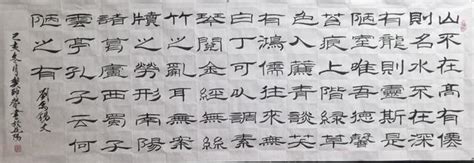 山不在高有僊
則名水不在深
有龍則靈斯是
陋室惟吾德馨
苔痕上階綠草
色入簾青談笑
有鴻儒往來無
白丁可以調素
琴閱金經無絲
竹之亂耳無案
牘之勞形南陽
諸葛廬西蜀子
雲亭孔子云何
陋之有
劉禹錫文
己亥冬月